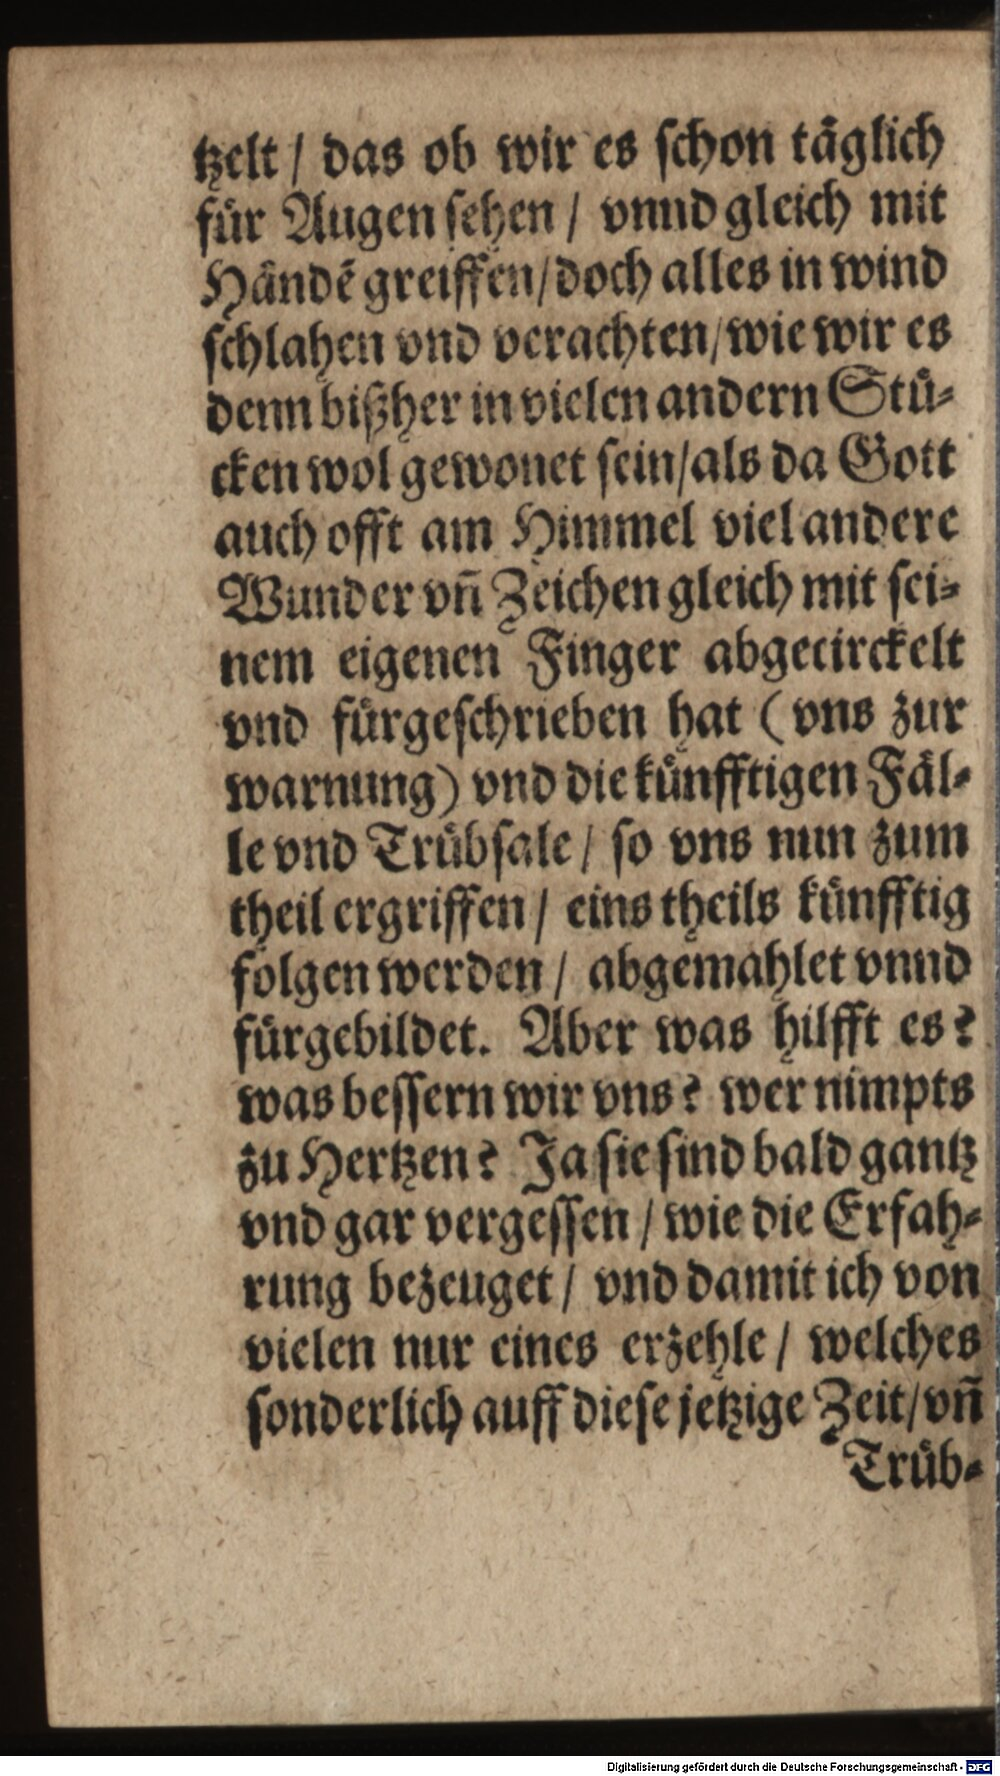 tzelt / das ob wir es ſchon täglich
für Augen ſehen / vnnd gleich mit
Händẽ greiffen/doch alles in wind
ſchlahen vnd verachten/wie wir es
denn bißher in vielen andern Stü-
cken wol gewonet ſein/als da Gott
auch offt am Himmel viel andere
Wunder vñ Zeichen gleich mit ſei-
nem eigenen Finger abgecirckelt
vnd fürgeſchrieben hat (vns zur
warnung) vnd die künfftigen Fäl-
le vnd Trübſale / ſo vns nun zum
theil ergriffen / eins theils künfftig
folgen werden / abgemahlet vnnd
fürgebildet. Aber was hilfft es?
was beſſern wir vns? wer nimpts
zu Hertzen? Ja ſie ſind bald gantz
vnd gar vergeſſen / wie die Erfah-
rung bezeuget / vnd damit ich von
vielen nur eines erzehle / welches
ſonderlich auff dieſe jetzige Zeit/vñ
Trüb-
Digitalisierung gefördert durch die Deutsche Forschungsgemeinschaft - DFG